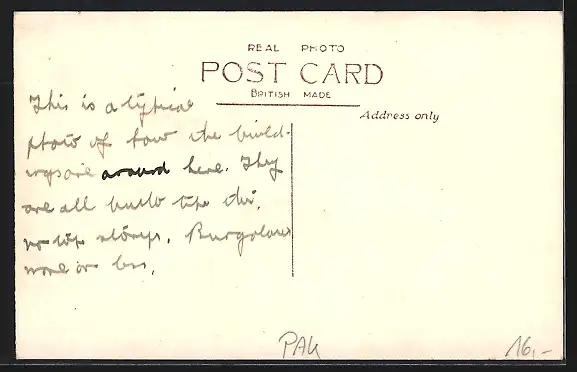 REAL PHOTO
POST CARD
BRITISH MADE
Address only
This is a typical
photo of how the build-
ings are around here. They
are all built like this,
no top storeys. Bungalows
more or less.
PAK
16,-